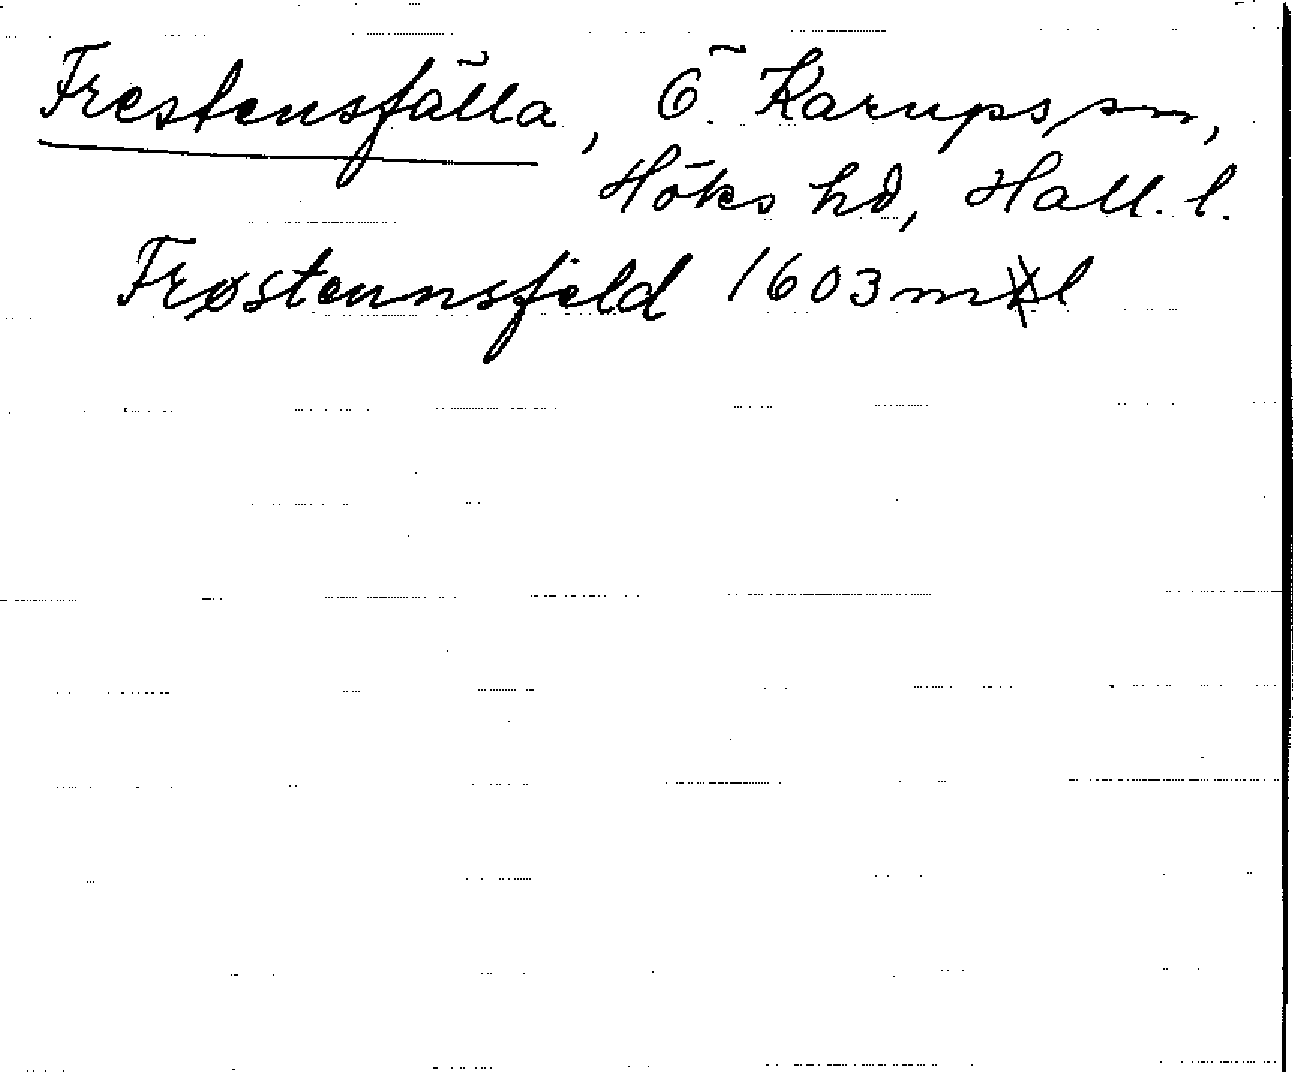 Frestensfälla, Ö. Karups sn,
Höks hd, Hall. l.
Frøstennsfeld 1603 mtl